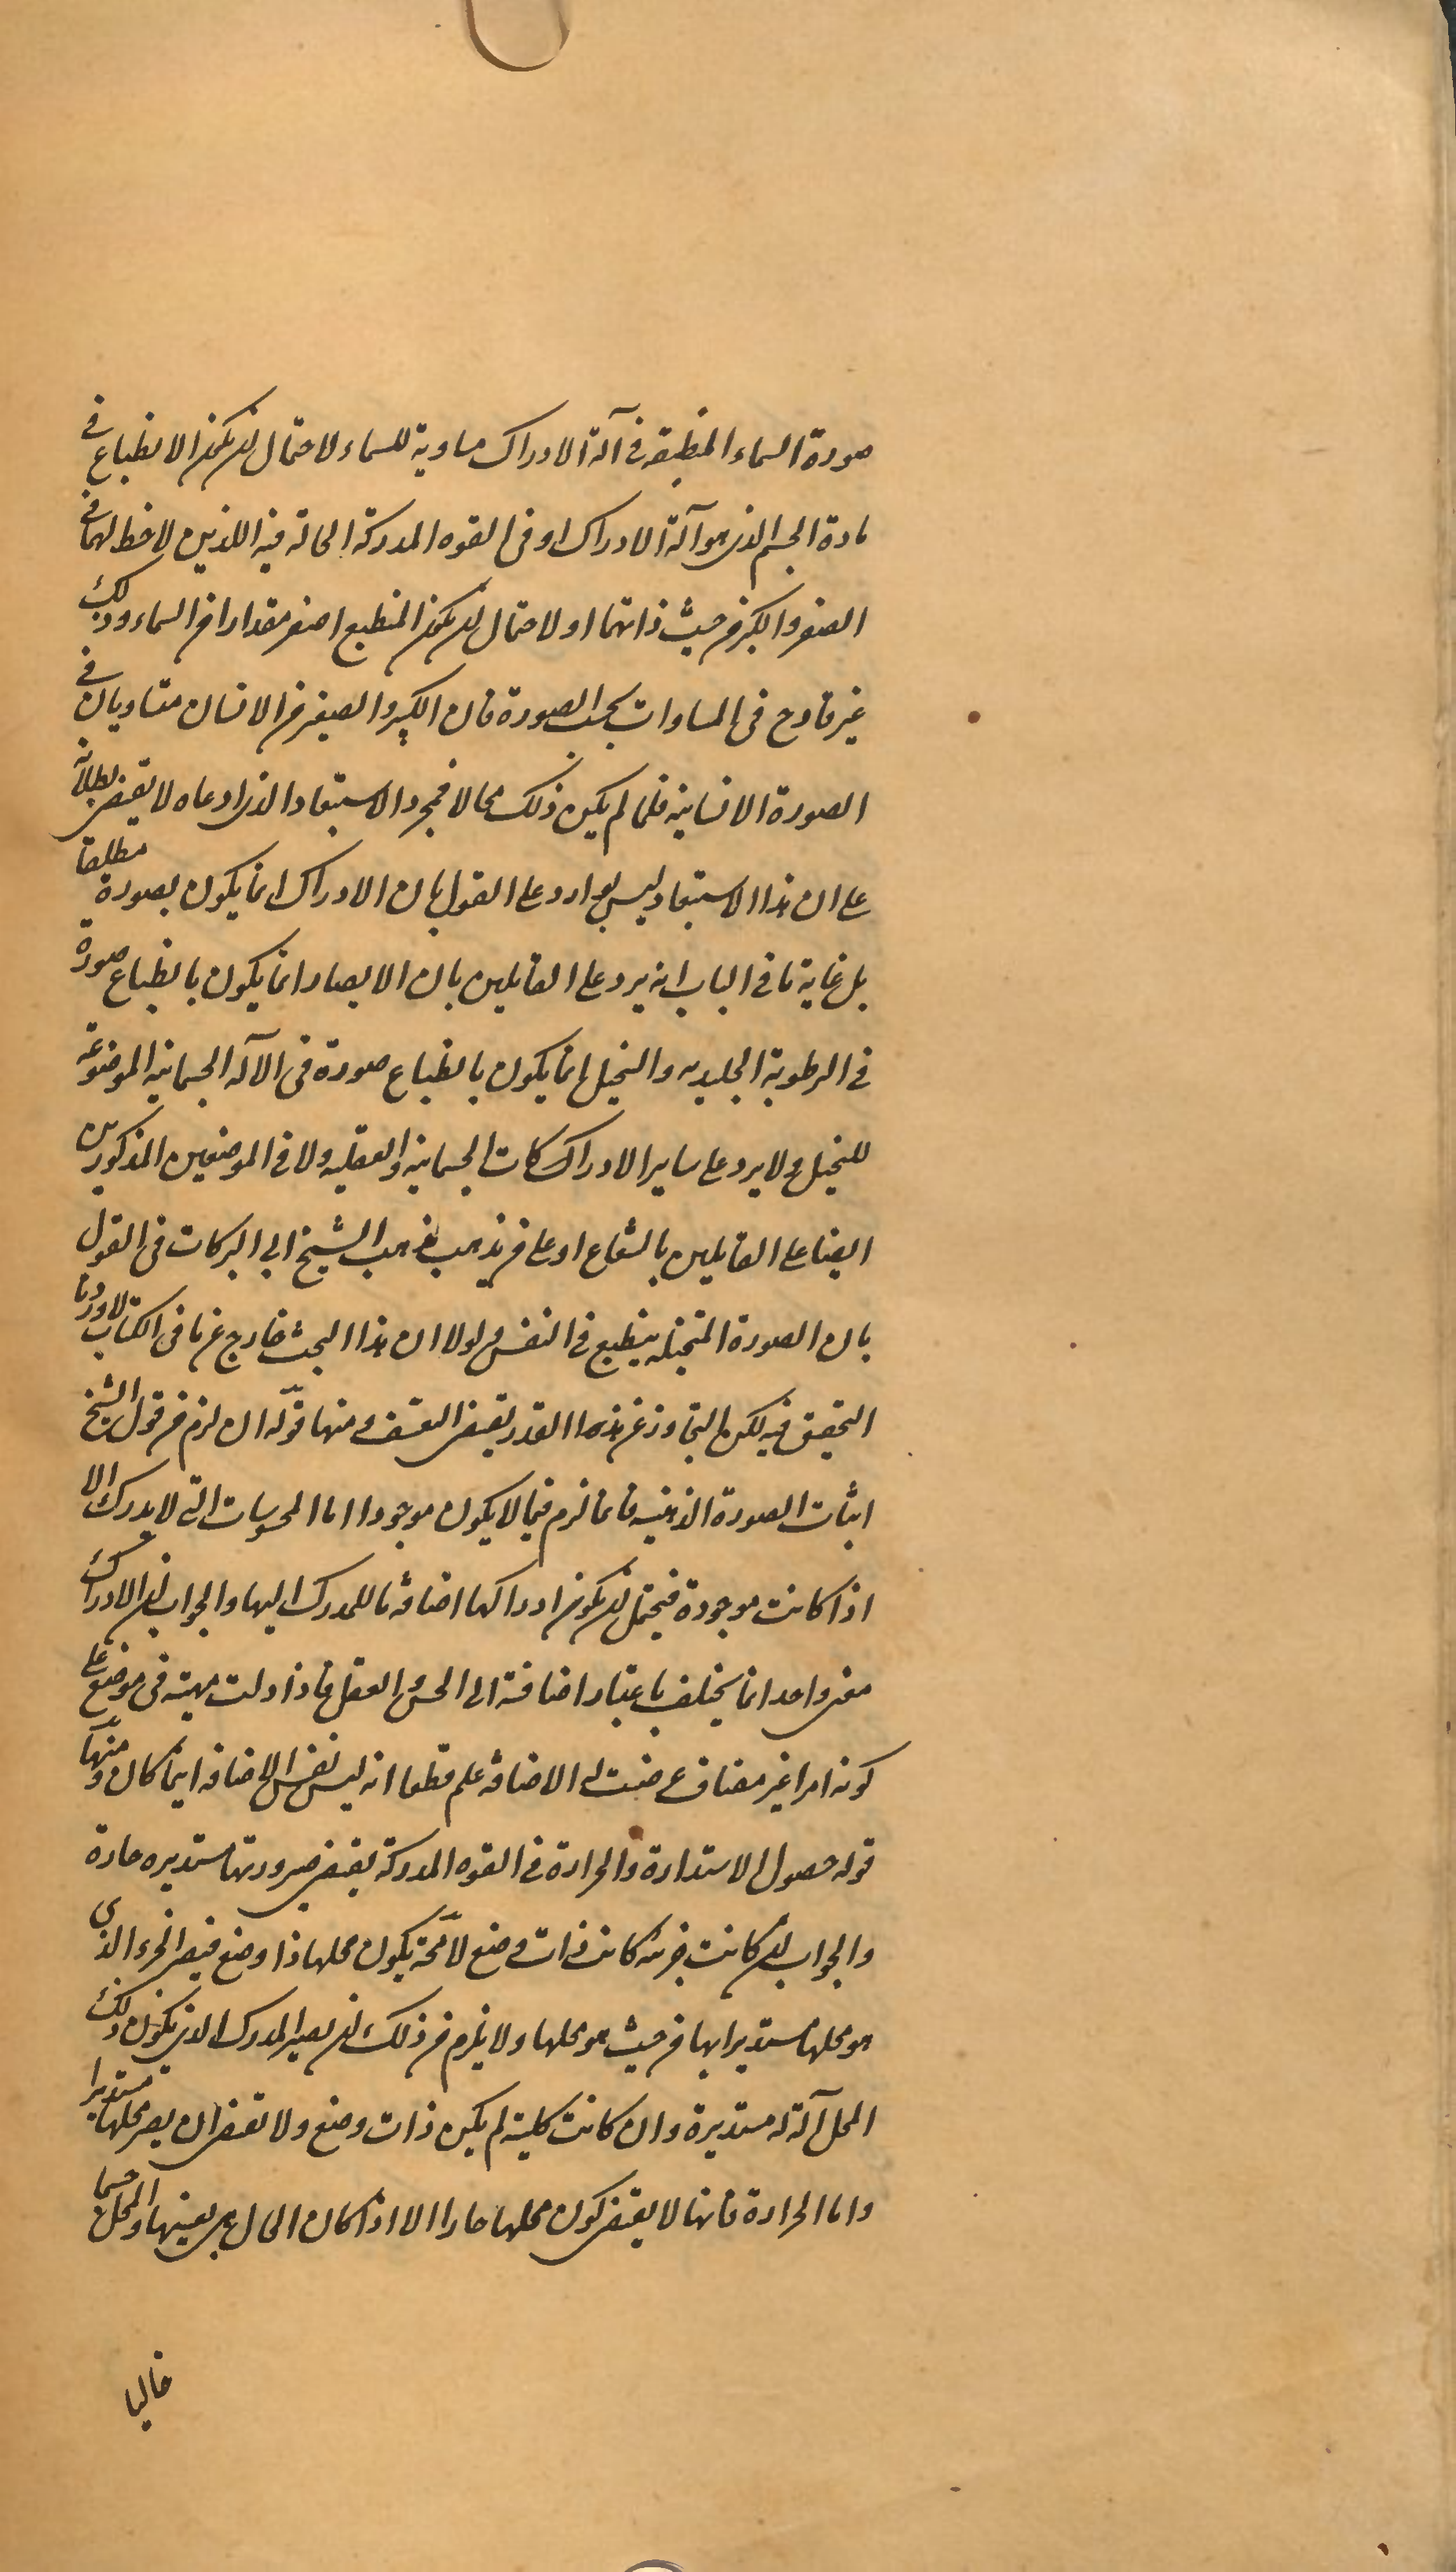 صورة السماء المنطبعة فى آلة الادراك مساوية للسماء لاحتمال ان يكون الانطباع فى
مادة الجسم الذى هو آلة الادراك او فى القوه المدركة الحالة فيه اللذين لا حظ لهما فى
الصغر والكبر من حيث ذاتهما او لاحتمال ان يكون المنطبع اصغر مقدارا من السماء وذلك
غير قادح فى المساوات بحسب الصورة فان الكبير والصغير من الانسان متساويان فى
الصورة الانسانية فلما لم يكن ذلك محالا فمجرد الاستبعاد الذى ادعاه لا يقتضى بطلانه
على ان هذا الاستبعاد ليس بوارد على القول بان الادراك انما يكون بصورة مطلقا
بل غاية ما فى الباب انه يرد على القايلين بان الابصار انما يكون بانطباع صورة
فى الرطوبة الجليديه والتخيل انما يكون بانطباع صورة فى الآله الجسمانيه الموضوعة
للتخيل ولا يرد على ساير الادراكات الجسمانية والعقليه ولا فى الموضعين المذكورين
ايضا على القايلين بالشعاع او على من يذهب مذهب الشيخ ابى البركات فى القول
بان الصورة المتخيله ينطبع فى النفس ولولا ان هذا البحث خارج عن ما فى الكتاب لاوردنا
التحقيق فيه لكن التجاوز عن هذا القدر يقتضى التعسف ومنها قوله ان لزم من قول الشيخ
اثبات الصورة الذهنيه فانما لزم فيما لا يكون موجودا اما المحسوسات التى لا يدرك الا
اذا كانت موجودة فيحتمل ان يكون ادراكها اضافة ما للمدرك اليها والجواب ان الادراك
معنى واحد انما يختلف باعتبار اضافته الى الحس والعقل فاذا دلت مهيته فى موضع على
كونه امرا غير مضاف عرضت له الاضافة علم قطعا انه ليس نفس الاضافه اينما كان ومنها
قوله حصول الاستدارة والحرارة فى القوه المدركة يقتضى صيرورتها مستديره حارة
والجواب ان كانت جزئية كانت ذات وضع لا محة يكون محلها ذا وضع فيصير الجزء الذى
هو محلها مستديرا بها من حيث هو محلها ولا يلزم من ذلك ان يصير المدرك الذى يكون ذلك
المحل آلة له مستديرة وان كانت كلية لم يكن ذات وضع ولا تقتضى ان يصير محلها مستديرا
واما الحرارة فانها لا يقتضى كون محلها حارا الا اذا كان الحال هى بعينها والمحل جسما
خاليا